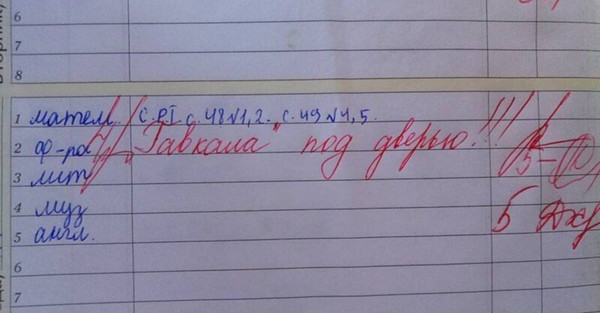 6
7
8
1 матем. с. РТ с. 48 №1, 2. с. 49 №4, 5.
2 ф-ра „Гавкала" под дверью!!!
3 лит
4 муз 5
5 англ.
6
7